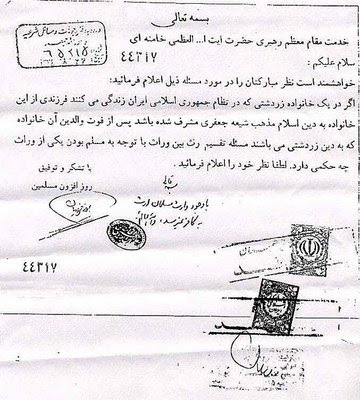 بسمه تعالی
خدمت مقام معظم رهبری حضرت ایت ا... العظمی خامنه ای
سلام علیکم :
۴۴۳۱۷
خواهشمند است نظر مبارکتان را در مورد مسئله ذیل اعلام فرمائید:
اگر در یک خانواده زردشتی که در نظام جمهوری اسلامی ایران زندگی می کنند فرزندی از این
خانواده به دین اسلام مذهب شیعه جعفری مشرف شده باشد پس از فوت والدین آن خانواده
که به دین زردشتی می باشند مسئله تقسیم رث بین وراث با توجه به مسلم بودن یکی از وراث
چه حکمی دارد. لطفا نظر خود را اعلام فرمائید .
با تشکر و توفیق
روز افزون مسلمین
با وجود وارث مسلمان ارث
به کافر نمیرسد
۴۴۳۱۷